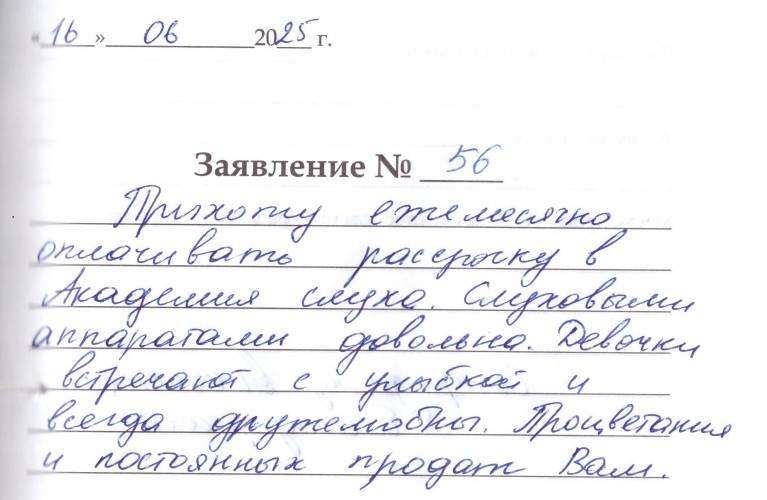 «16» 06 2025 г.
Заявление № 56
Прихожу ежемесячно
оплачивать рассрочку в
Академия слуха. Слуховыми
аппаратами довольна. Девочки
встречают с улыбкой и
всегда дружелюбны. Процветания
и постоянных продаж Вам.